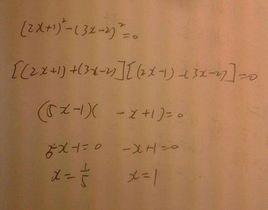 (2x+1)²-(3x-2)²=0
[(2x+1)+(3x-2)][(2x-1)-(3x-2)]=0
(5x-1)( -x+1)=0
5x-1=0 -x+1=0
x=1/5 x=1